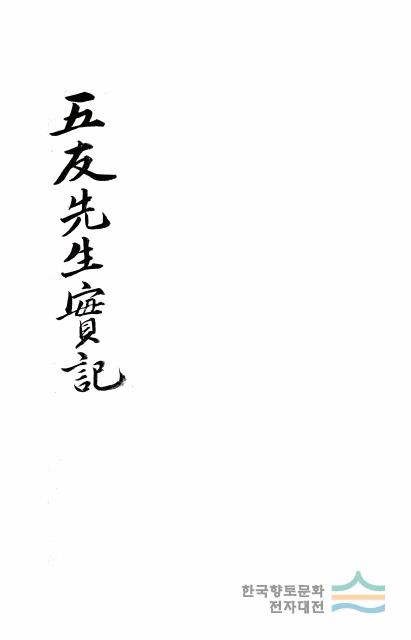 五友先生實記
한국향토문화
전자대전